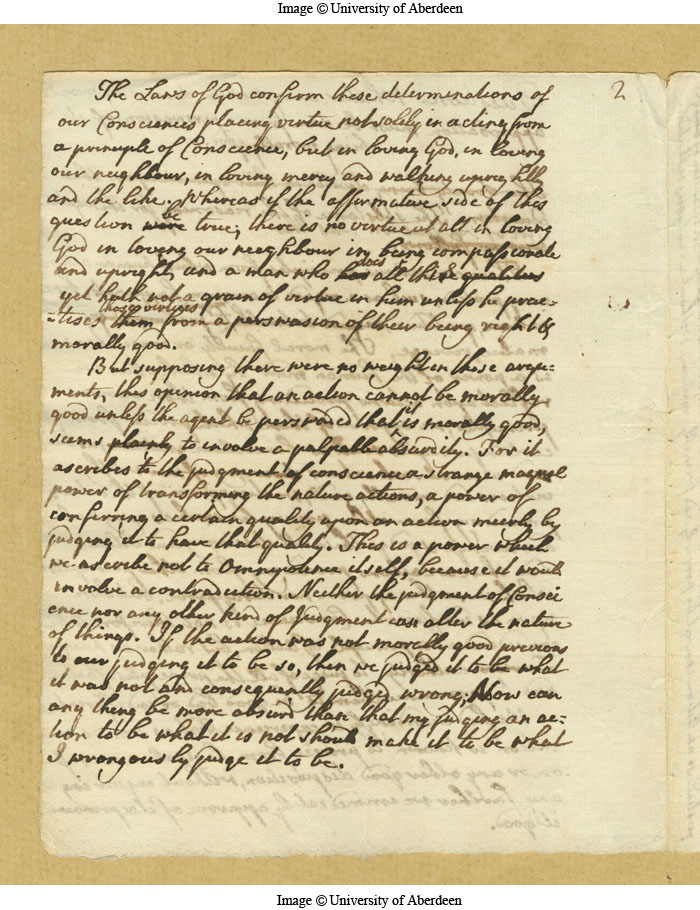 Image © University of Aberdeen
2
The Laws of God confirm these determinations of
our Consciences placing virtue not solely in acting from
a principle of Conscience, but in loving God, in loving
our neighbour, in loving mercy and walking uprightly
and the like. Whereas if the affirmative side of this
question were be true, there is no virtue at all in loving
God in loving our neighbour in being compassionate
and upright, and a man who has does all these qualities
yet hath not a grain of virtue in him unless he prac-
-tises them those virtues from a perswasion of their being right &
morally good.
But supposing there were no weight in these argu-
ments, this opinion that an action cannot be morally
good unless the agent be perswaded that it is morally good,
seems plainly to involve a palpable absurdity. For it
ascribes to the judgment of conscience a strange magical
power of transforming the nature actions, a power of
conferring a certain quality upon an action meerly by
judging it to have that quality. This is a power which
we ascribe not to Omnipotence itself, because it would
involve a contradiction. Neither the judgment of Consci
ence nor any other kind of Judgment can alter the nature
of things. If the action was not morally good previous
to our judging it to be so, then we judged it to be what
it was not and consequently judged wrong; Now can
any thing be more absurd than that my judging an ac-
tion to be what it is not should make it to be what
I wrongously judge it to be.
Image © University of Aberdeen